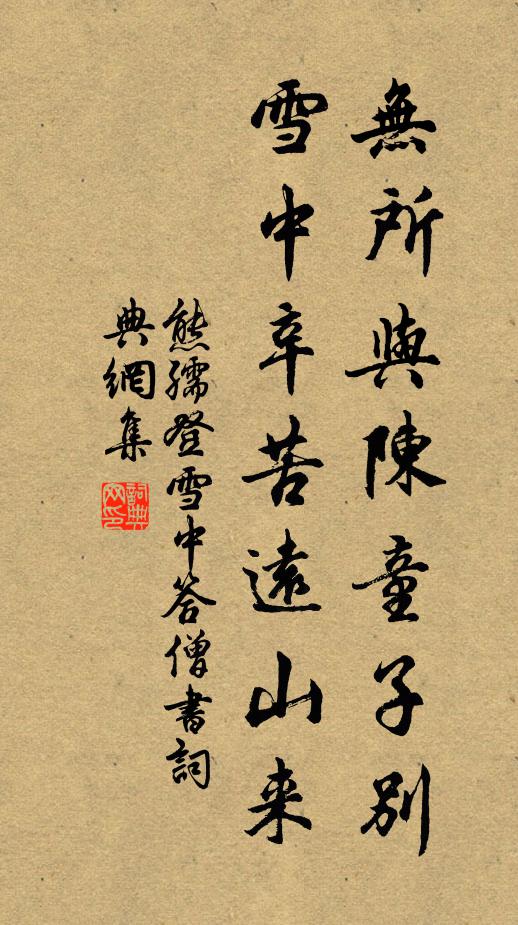 無所與陳童子別
雪中辛苦遠山来
熊孺登雪中答僧書詞
典網集
詞典网印